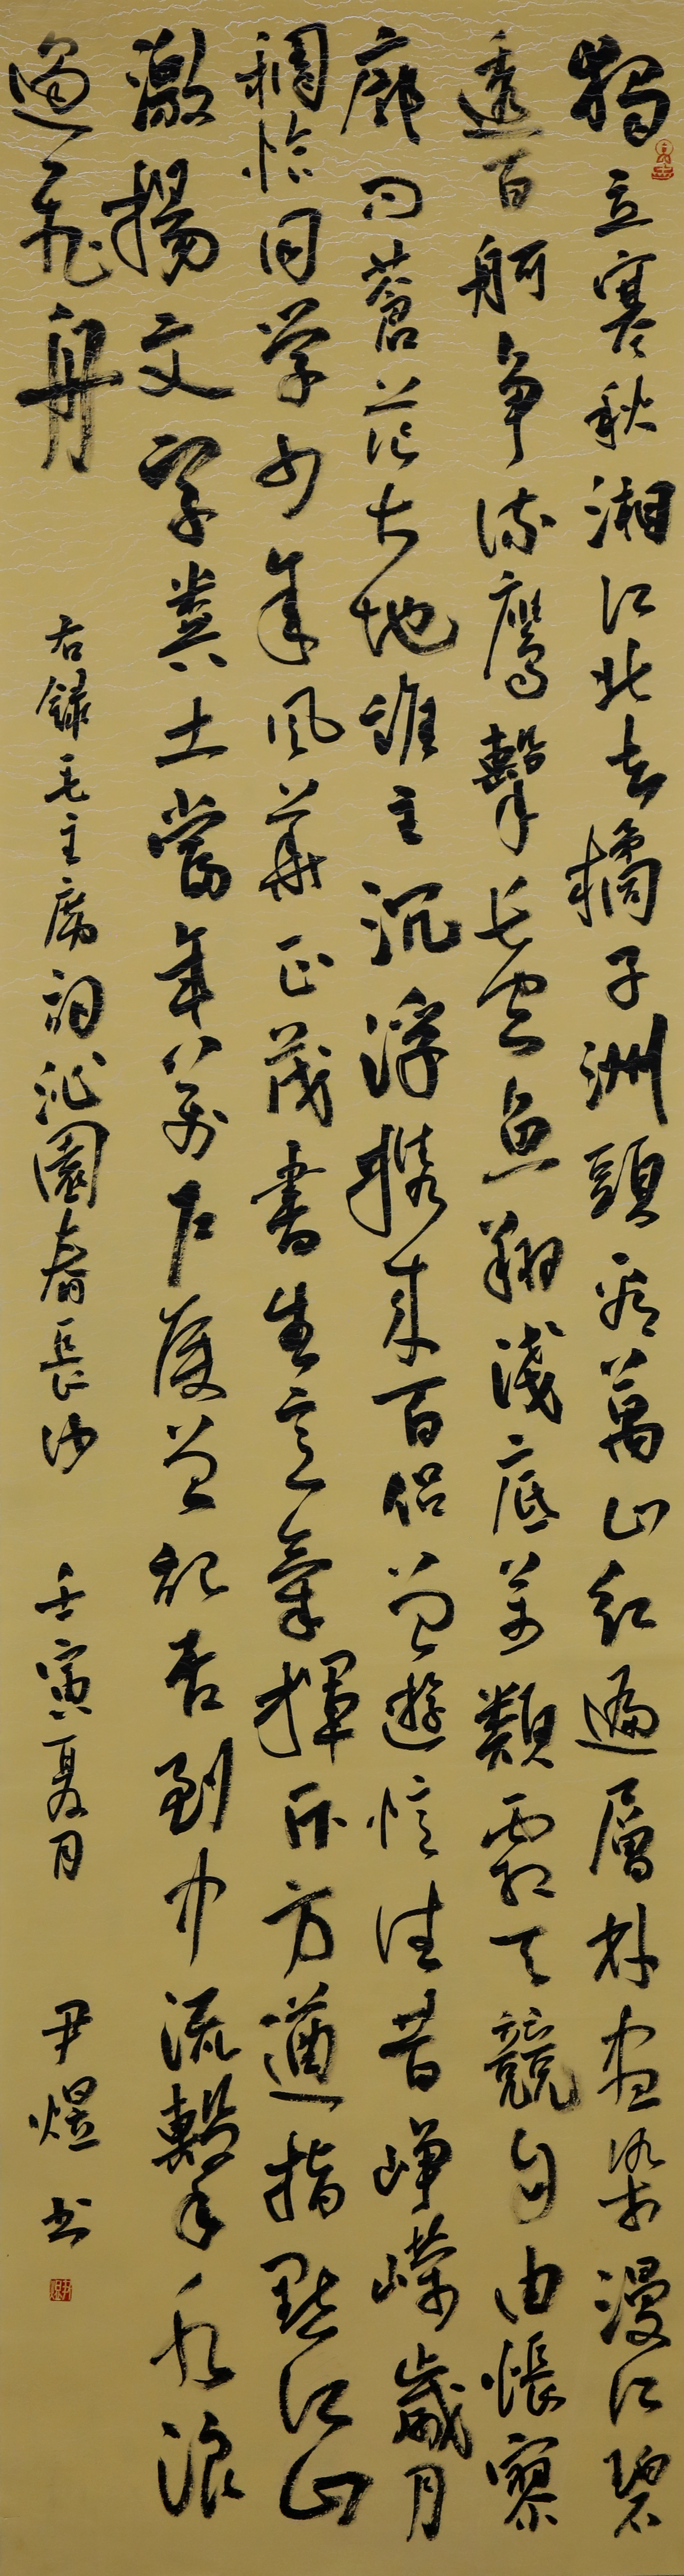 獨立寒秋湘江北去橘子洲頭看萬山紅遍層林盡染漫江碧
透百舸争流鷹擊長空魚翔淺底萬類霜天競自由悵寥
廓問蒼茫大地誰主沉浮携來百侣曾遊憶往昔崢嶸歲月
稠恰同学少年風華正茂書生意氣揮斥方遒指點江山
激揚文字糞土當年萬户侯曾記否到中流擊水浪
遏飛舟
右録毛主席詞沁園春長沙 壬寅夏月 尹煜書